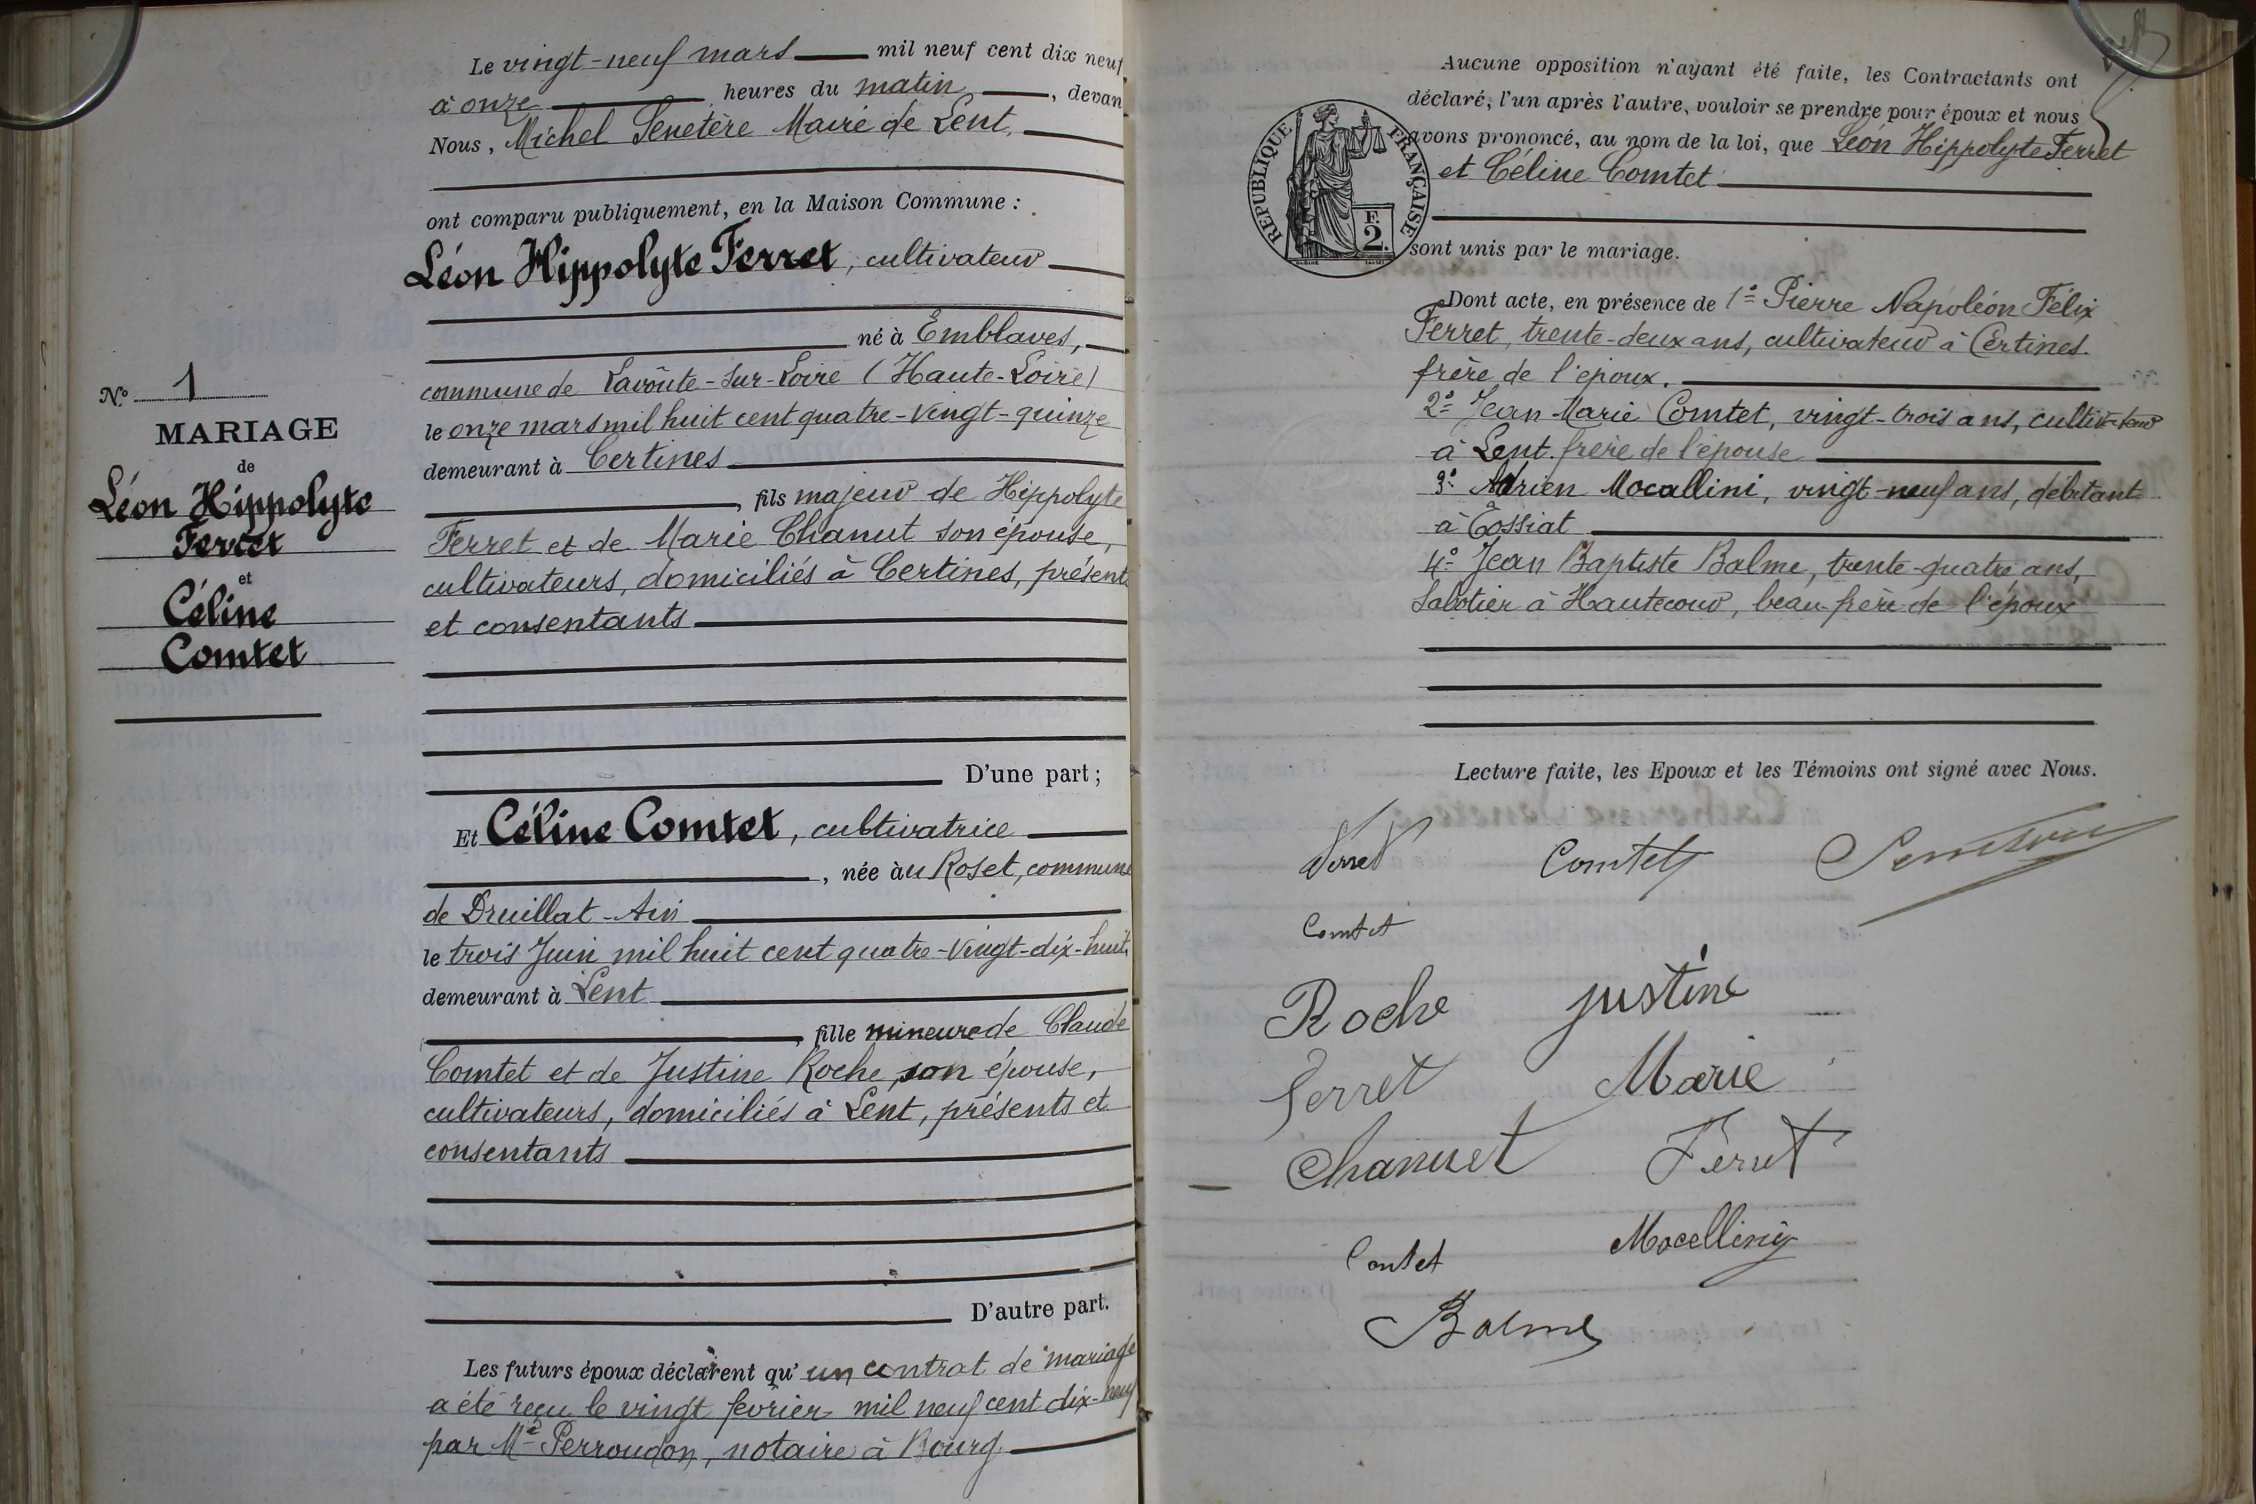 Le vingt-neuf mars mil neuf cent dix neuf
à onze heures du matin, devan
Nous, Michel Senetère Maire de Lent,
ont comparu publiquement, en la Maison Commune :
Léon Hippolyte Ferret, cultivateur
né à Emblaves,
commune de Lavoûte-sur-Loire (Haute-Loire)
le onze mars mil huit cent quatre-vingt-quinze
demeurant à Certines
, fils majeur de Hippolyte
Ferret et de Marie Chanut son épouse,
cultivateurs, domiciliés à Certines, présents
et consentants
D'une part ;
Et Céline Comtet, cultivatrice
, née au Roset, commune
de Druillat-Ain
le trois Juin mil huit cent quatre-vingt-dix-huit
demeurant à Lent
, fille mineure de Claude
Comtet et de Justine Roche, son épouse,
cultivateurs, domiciliés à Lent, présents et
consentants
D'autre part.
Les futurs époux déclarent qu'un contrat de mariage
a été reçu le vingt février mil neuf cent dix-neuf
par Me Perroudon, notaire à Bourg
No 1
MARIAGE
de
Léon Hippolyte
Ferret
et
Céline
Comtet
Aucune opposition n'ayant été faite, les Contractants ont
déclaré, l'un après l'autre, vouloir se prendre pour époux et nous
avons prononcé, au nom de la loi, que Léon Hippolyte Ferret
et Céline Comtet
sont unis par le mariage.
REPUBLIQUE FRANÇAISE
F.
2.
Dont acte, en présence de 1º Pierre Napoléon Félix
Ferret, trente-deux ans, cultivateur à Certines.
frère de l'époux.
2º Jean-Marie Comtet, vingt-trois ans, cultivateur
à Lent. frère de l'épouse
3º Adrien Mocallini, vingt-neuf ans, débitant
à Tossiat
4º Jean Baptiste Balme, trente-quatre ans,
Sabotier à Hautecour, beau-frère de l'époux
Lecture faite, les Epoux et les Témoins ont signé avec Nous.
Ferret Comtet
Comtet
Roche justine
Ferret Marie
Chanuet Ferret
Comtet Mocelliny
Balme